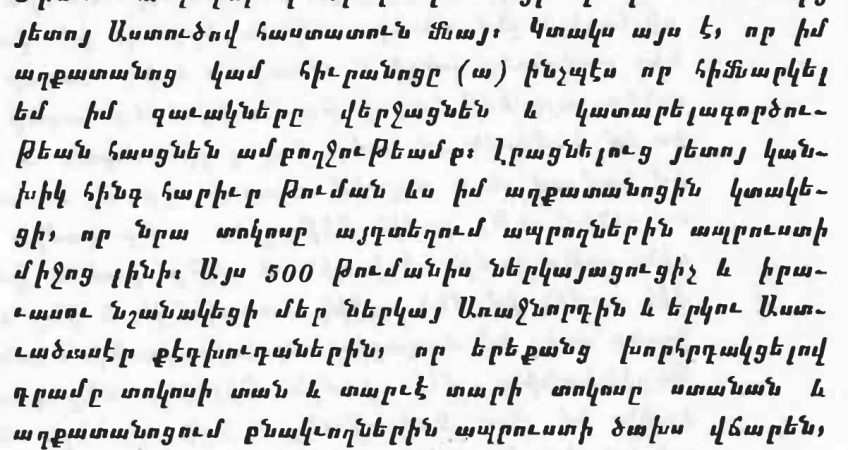 յետոյ Աստուծով հաստատուն մնայ։ Կտակս այս է, որ իմ
աղքատանոց կամ հիւրանոցը (ա) ինչպէս որ հիմնարկել
եմ իմ զաւակները վերջացնեն և կատարելագործու-
թեան հասցնեն ամբողջութեամբ։ Լրացնելուց յետոյ կան-
խիկ հինգ հարիւր թուման ևս իմ աղքատանոցին կտակե-
ցի, որ նրա տոկոսը այդտեղում ապրողներին ապրուստի
միջոց լինի։ Այս 500 թումանիս ներկայացուցիչ և իրա-
ւասու նշանակեցի մեր ներկայ Առաջնորդին և երկու Աստ-
ւածասէր քէդխուդաներին, որ երեքանց խորհրդակցելով
գրամը տոկոսի տան և տարւէ տարի տոկոսը ստանան և
աղքատանոցում բնակւողներին ապրուստի ծախս վճարեն,